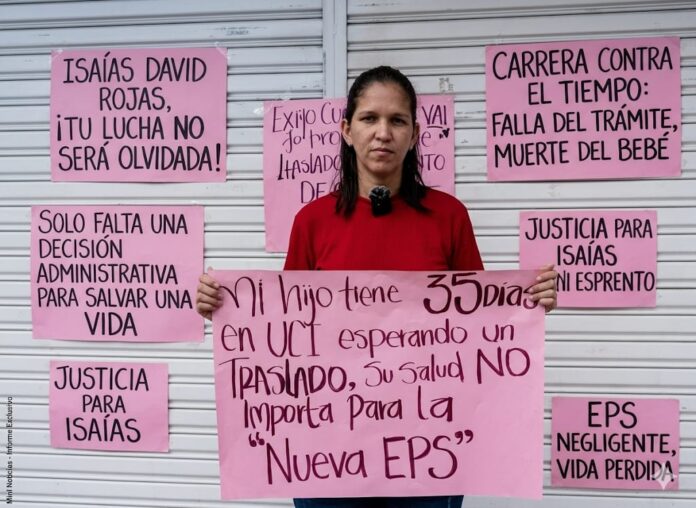 ISAÍAS DAVID
ROJAS,
¡TU LUCHA NO
SERÁ OLVIDADA!
Exijo
VAI
TRASLADO
CARRERA CONTRA
EL TIEMPO:
FALLA DEL TRÁMITE,
MUERTE DEL BEBÉ
SOLO FALTA UNA
DECISIÓN
ADMINISTRATIVA
PARA SALVAR UNA
VIDA
JUSTICIA PARA
ISAÍAS
NI ESPRENTO
Mi hijo tiene 35 Días
en UCI esperando un
TRASLADO, Su Salud NO
Importa Para la
"Nueva EPS"
JUSTICIA
PARA
ISAÍAS
EPS
NEGLIGENTE,
VIDA PERDIDA
Mini Noticias - Informe Exclusivo